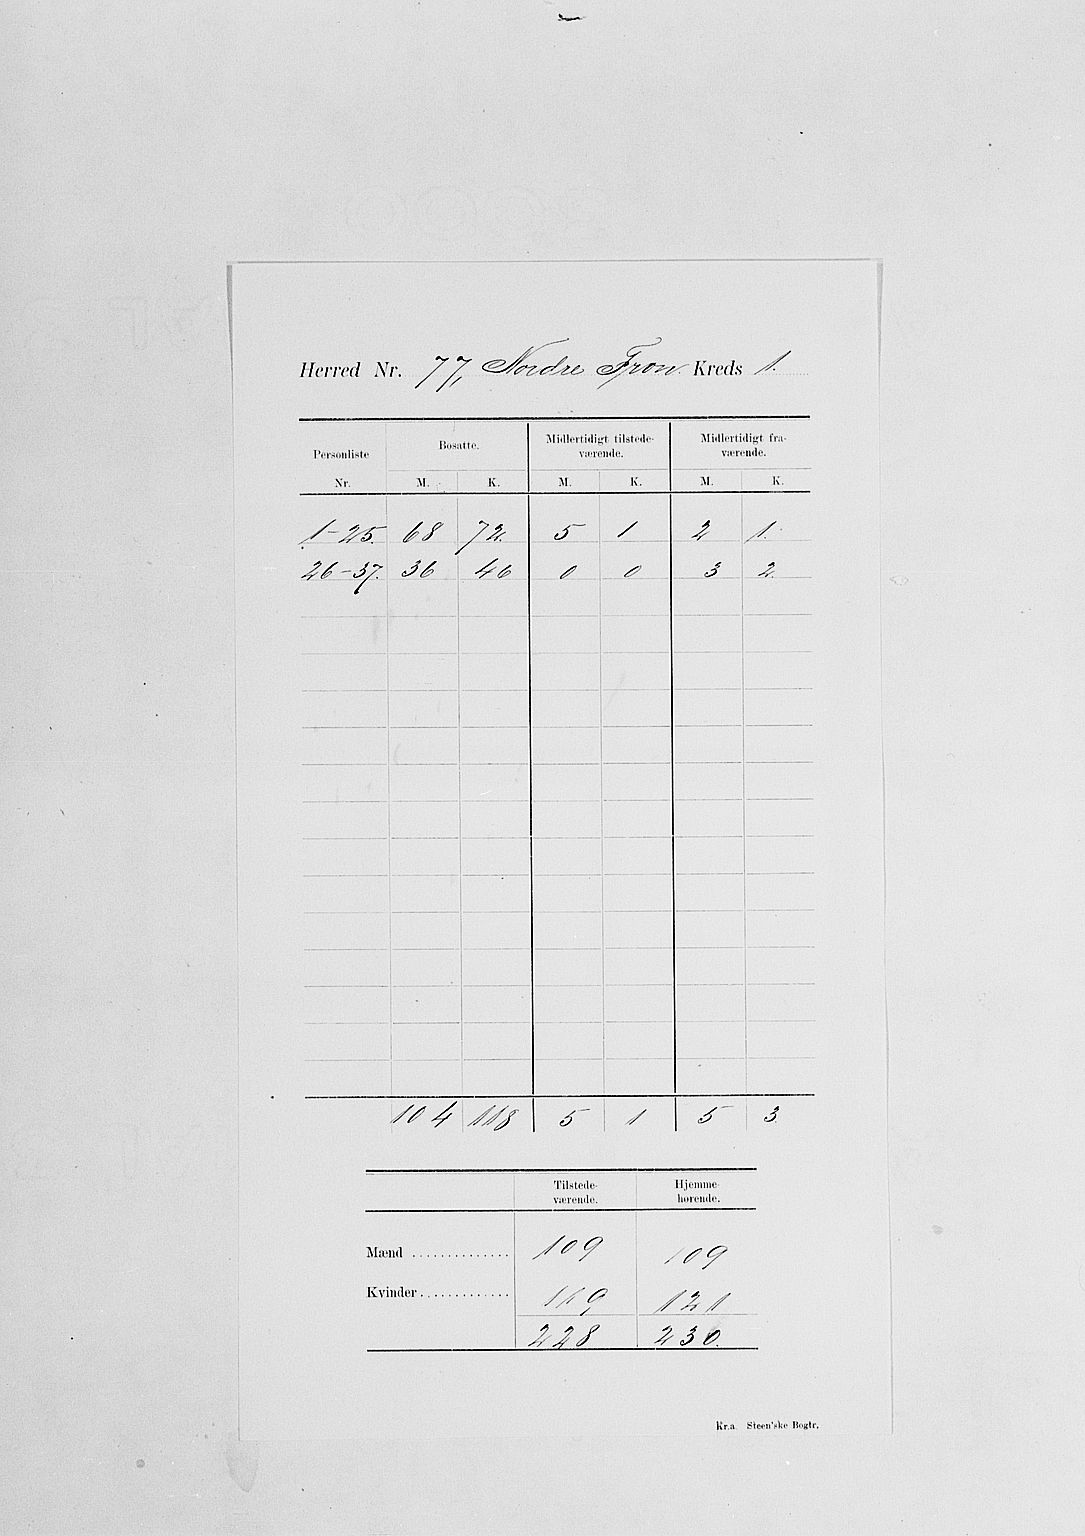 Herred Nr. 77, Nordre Fron. Kreds 1.
Personliste Nr. Bosatte. Midlertidigt tilstede-værende. Midlertidigt fra-værende.
M. K. M. K. M. K.
1-25. 68 72. 5 1 2 1.
26-37. 36 46 0 0 3 2.
104 118 5 1 5 3.
Tilstede-værende. Hjemme-hørende.
Mænd .............. 109 109
Kvinder ............. 119, 121
228 230.
Kr.a. Steen'ske Bogtr.